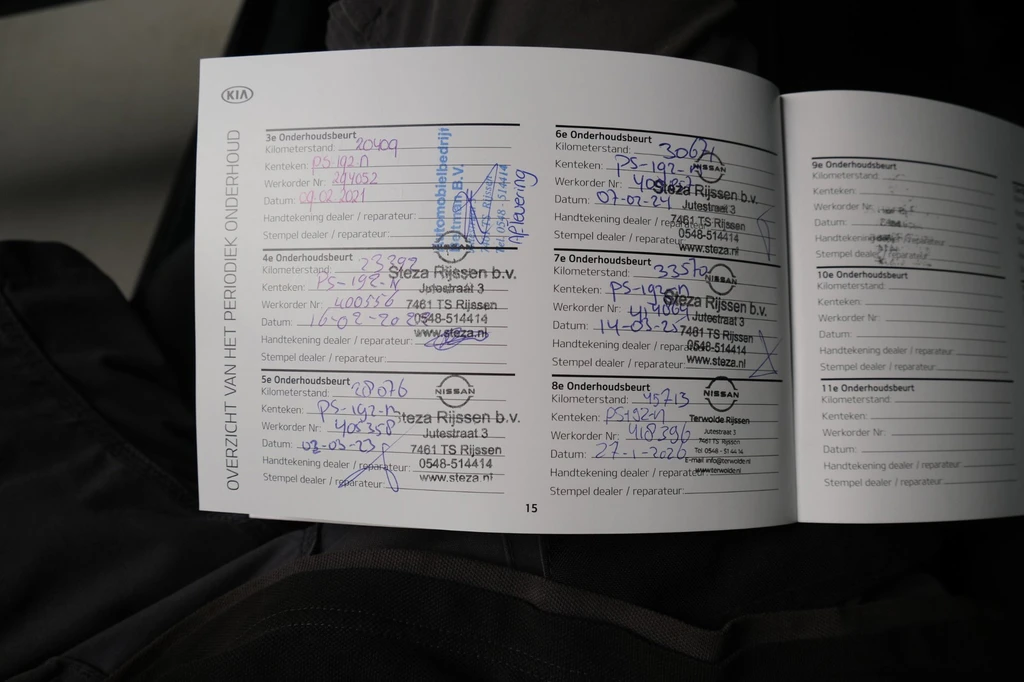 KIA
OVERZICHT VAN HET PERIODIEK ONDERHOUD
3e Onderhoudsbeurt
Kilometerstand: 20409
Kenteken: PS-192-N
Werkorder Nr: 294052
Datum: 09 02 2021
Handtekening dealer / reparateur:
Stempel dealer / reparateur:
Automobielbedrijf
B.V.
TS Rijssen
Tel. 0548 - 514414
Aflevering
4e Onderhoudsbeurt
Kilometerstand: 23292
Kenteken: PS-192-N
Werkorder Nr: 400556
Datum: 16-02-20
Handtekening dealer / reparateur:
Stempel dealer / reparateur:
Steza Rijssen b.v.
Jutestraat 3
7461 TS Rijssen
0548-514414
www.steza.nl
5e Onderhoudsbeurt
Kilometerstand: 28076
Kenteken: PS-192-N
Werkorder Nr: 405358
Datum: 02-03-23
Handtekening dealer / reparateur:
Stempel dealer / reparateur:
NISSAN
Steza Rijssen b.v.
Jutestraat 3
7461 TS Rijssen
0548-514414
www.steza.nl
15
6e Onderhoudsbeurt
Kilometerstand:
Kenteken: PS-192-N
Werkorder Nr:
Datum: 07-02-24
Handtekening dealer / reparateur:
Stempel dealer / reparateur:
NISSAN
Steza Rijssen b.v.
Jutestraat 3
7461 TS Rijssen
0548-514414
www.steza.nl
7e Onderhoudsbeurt
Kilometerstand: 33572
Kenteken: PS-192-N
Werkorder Nr: 414069
Datum: 14-03-25
Handtekening dealer / reparateur:
Stempel dealer / reparateur:
NISSAN
Steza Rijssen b.v.
Jutestraat 3
7461 TS Rijssen
0548-514414
www.steza.nl
8e Onderhoudsbeurt
Kilometerstand: 45713
Kenteken: PS-192-N
Werkorder Nr: 418396
Datum: 27-1-2026
Handtekening dealer / reparateur:
Stempel dealer / reparateur:
NISSAN
Terwolde Rijssen
Jutestraat 3
7461 TS Rijssen
Tel 0548 - 51 44 14
E-mail info@terwolde.nl
www.terwolde.nl
9e Onderhoudsbeurt
Kilometerstand:
Kenteken:
Werkorder Nr:
Datum:
Handtekening dealer / reparateur:
Stempel dealer / reparateur:
10e Onderhoudsbeurt
Kilometerstand:
Kenteken:
Werkorder Nr:
Datum:
Handtekening dealer / reparateur:
Stempel dealer / reparateur:
11e Onderhoudsbeurt
Kilometerstand:
Kenteken:
Werkorder Nr:
Datum:
Handtekening dealer / reparateur:
Stempel dealer / reparateur: